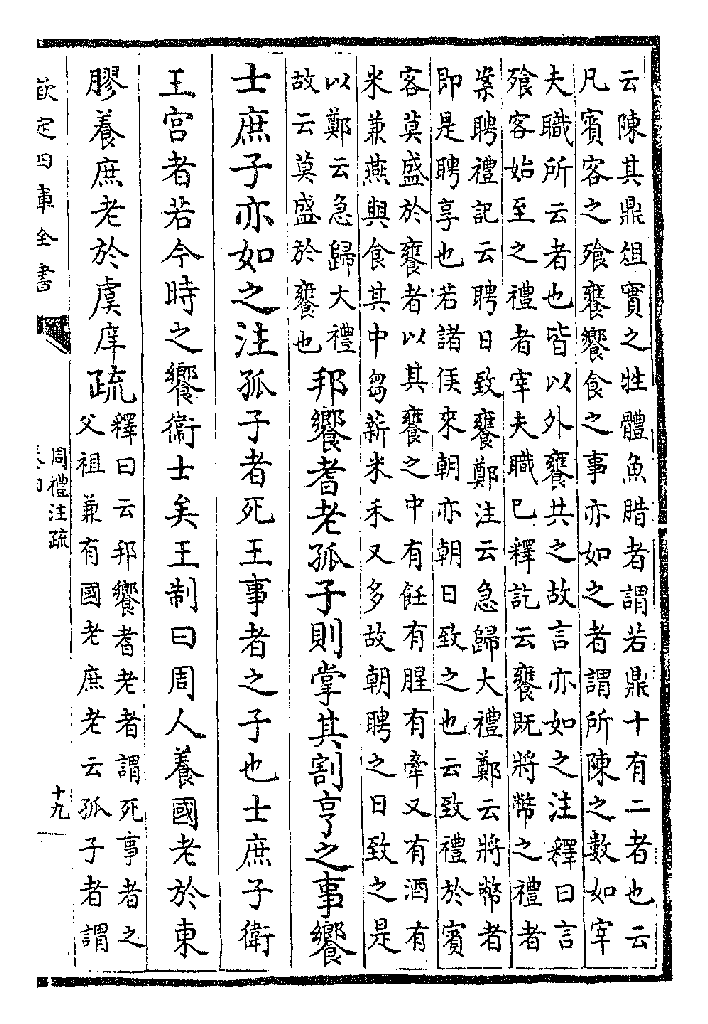 云陳其鼎俎實之牲體魚腊者謂若鼎十有二者也云
凡賓客之飧饔饗食之事亦如之者謂所陳之數如宰
夫職所云者也皆以外饔共之故言亦如之注釋曰言
飧客始至之禮者宰夫職已釋訖云饔既將幣之禮者
案聘禮記云聘日致饔鄭注云急歸大禮鄭云將幣者
即是聘享也若諸侯來朝亦朝日致之也云致禮於賓
客莫盛於饔者以其饔之中有飪有腥有牽又有酒有
米兼燕與食其中芻薪米禾又多故朝聘之日致之是
以鄭云急歸大禮
故云莫盛於饔也
邦饗耆老孤子則掌其割亨之事饗
士庶子亦如之注孤子者死王事者之子也士庶子衛
王宮者若今時之饗衞士矣王制曰周人養國老於東
膠養庶老於虞庠疏
釋曰云邦饗耆老者謂死事者之
父祖兼有國老庶老云孤子者謂
欽定四庫全書
周禮注疏
卷四
十九